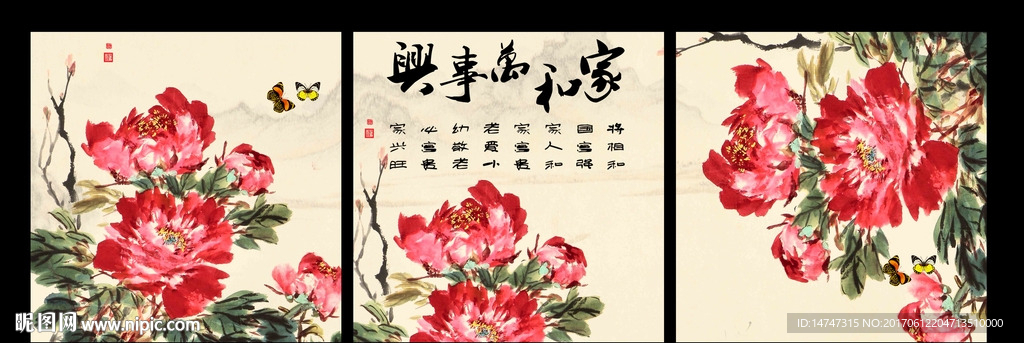 家和萬事興
将相和
國富强
家人和
家富贵
老爱小
幼敬老
心富贵
家兴旺
昵图网 www.nipic.com
ID:14747315 NO:20170612204713510000